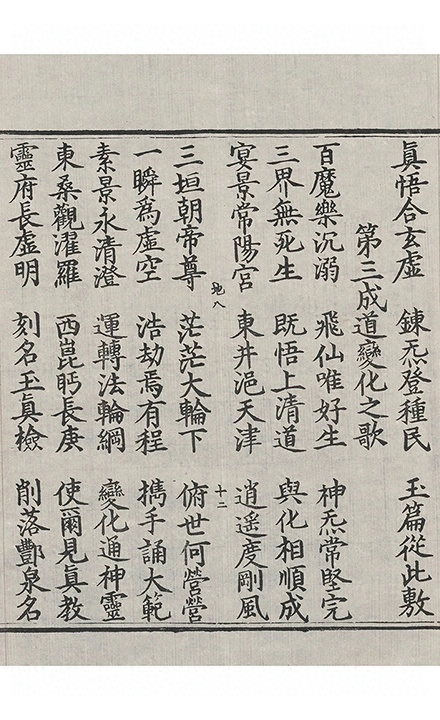 眞悟合玄虛　鍊炁登種民　玉篇從此敷
第三成道變化之歌
百魔樂沉溺　飛仙唯好生　神炁常堅完
三界無死生　既悟上清道　與化相順成
宴景常陽宮　東井浥天津　逍遥度剛風
地八　十二
三垣朝帝尊　茫茫大輪下　俯世何營營
一瞬爲虛空　浩劫焉有程　攜手誦大範
素景永清澄　運轉法輪綱　變化通神靈
東桑觀濯羅　西崑眄長庚　使爾見眞教
靈府長虛明　刻名玉眞檢　削落酆泉名